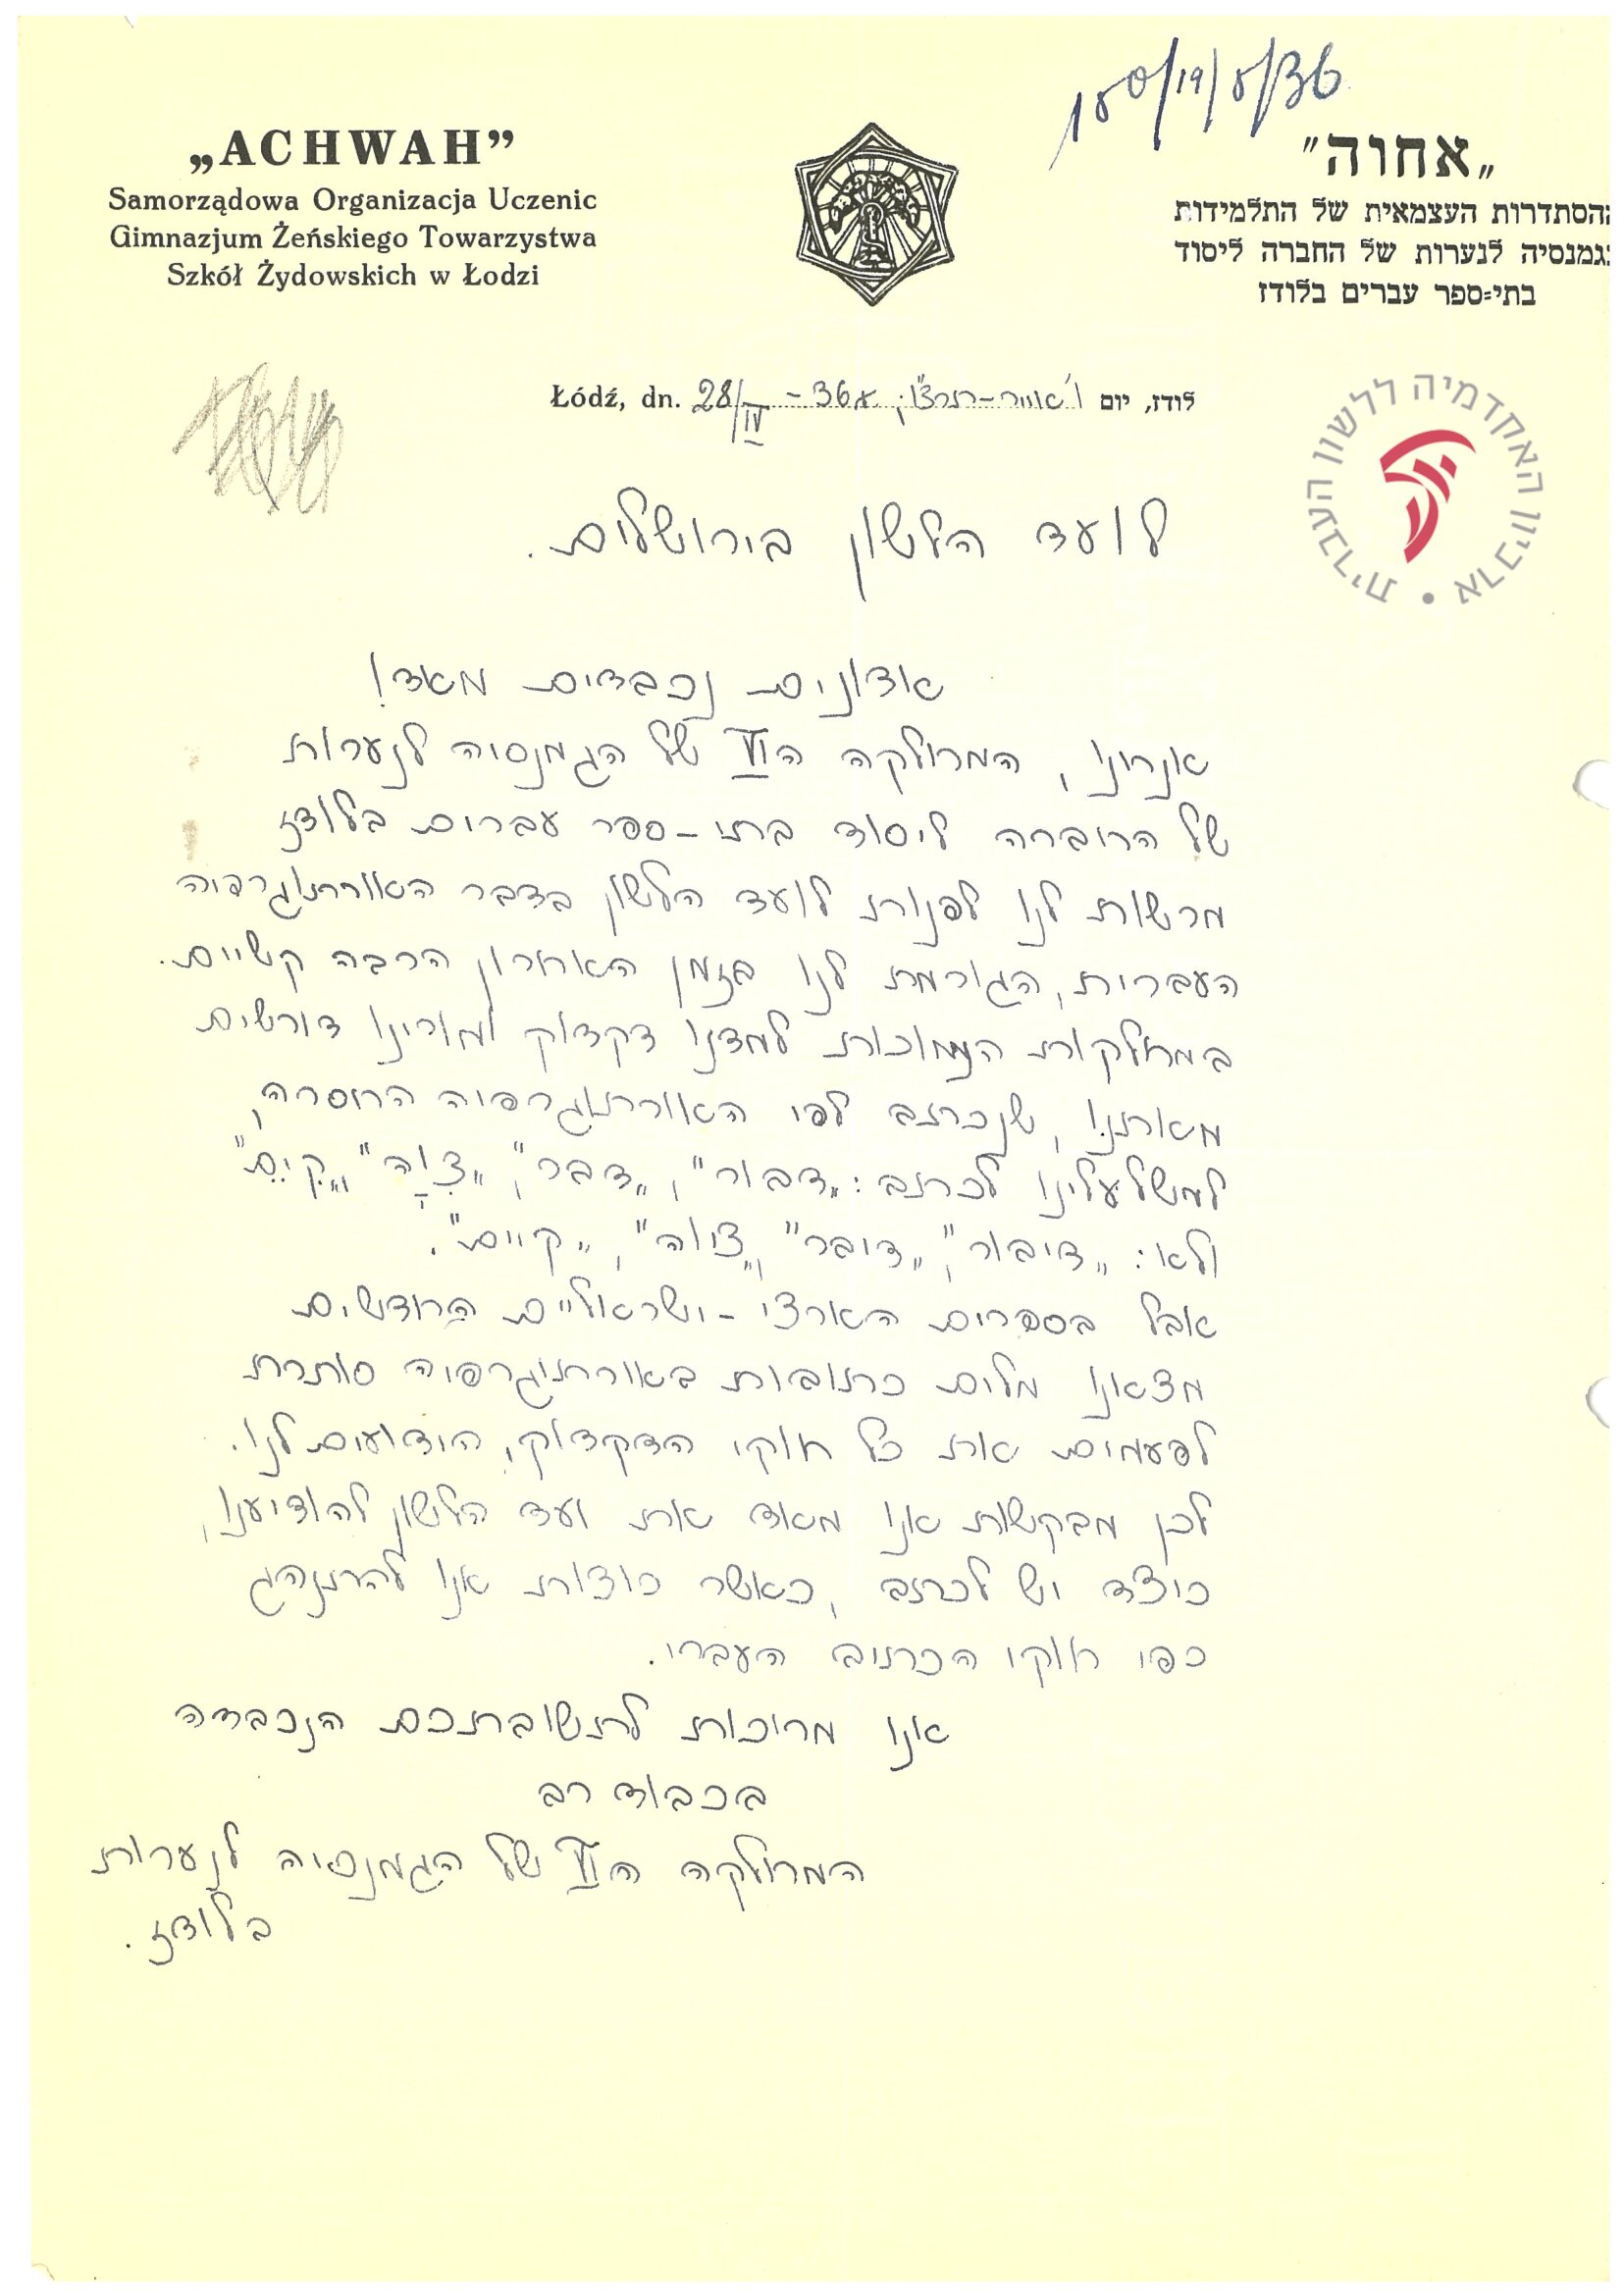 „ACHWAH”
Samorządowa Organizacja Uczenic
Gimnazjum Żeńskiego Towarzystwa
Szkół Żydowskich w Łodzi
„אחוה”
ההסתדרות העצמאית של התלמידות
גמנסיה לנערות של החברה ליסוד
בתי-ספר עברים בלודז
לודז, יום ו' אייר-תרצ"ו, 36 - 28/IV Łódź, dn.
ארכיון האקדמיה ללשון העברית
לועד הלשון בירושלים.
אדונים נכבדים מאד!
אנחנו, המחלקה הVI של הגמנסיה לנערות
של החברה ליסוד בתי-ספר עברים בלודז
מרשות לנו לפנות לועד הלשון בדבר האורתוגרפיה
העברית, הגורמת לנו בזמן האחרון הרבה קשיים.
במחלקות הנמוכות למדנו דקדוק ומורינו דורשים
מאתנו, שנכתב לפי האורתוגרפיה החסרה,
למשל עלינו לכתב: „דבור”, „דבר”, „צִוָּה”, „קִיֵּם”
ולא: „דיבור”, „דובר”, „ציוה”, „קיים”.
אבל בספרים הארצי-ישראליים החדשים
מצאנו מלים כתובות באורתוגרפיה סותרת
לפעמים את כל חוקי הדקדוק, הידועים לנו.
לכן מבקשות אנו מאוד את ועד הלשון להודיענו,
כיצד יש לכתב, כאשר רוצות אנו להתנהג
כפי חוקי הכתיב העברי.
אנו מחכות לתשובתכם הנכבדה
בכבוד רב
המחלקה הVI של הגמנסיה לנערות
בלודז.